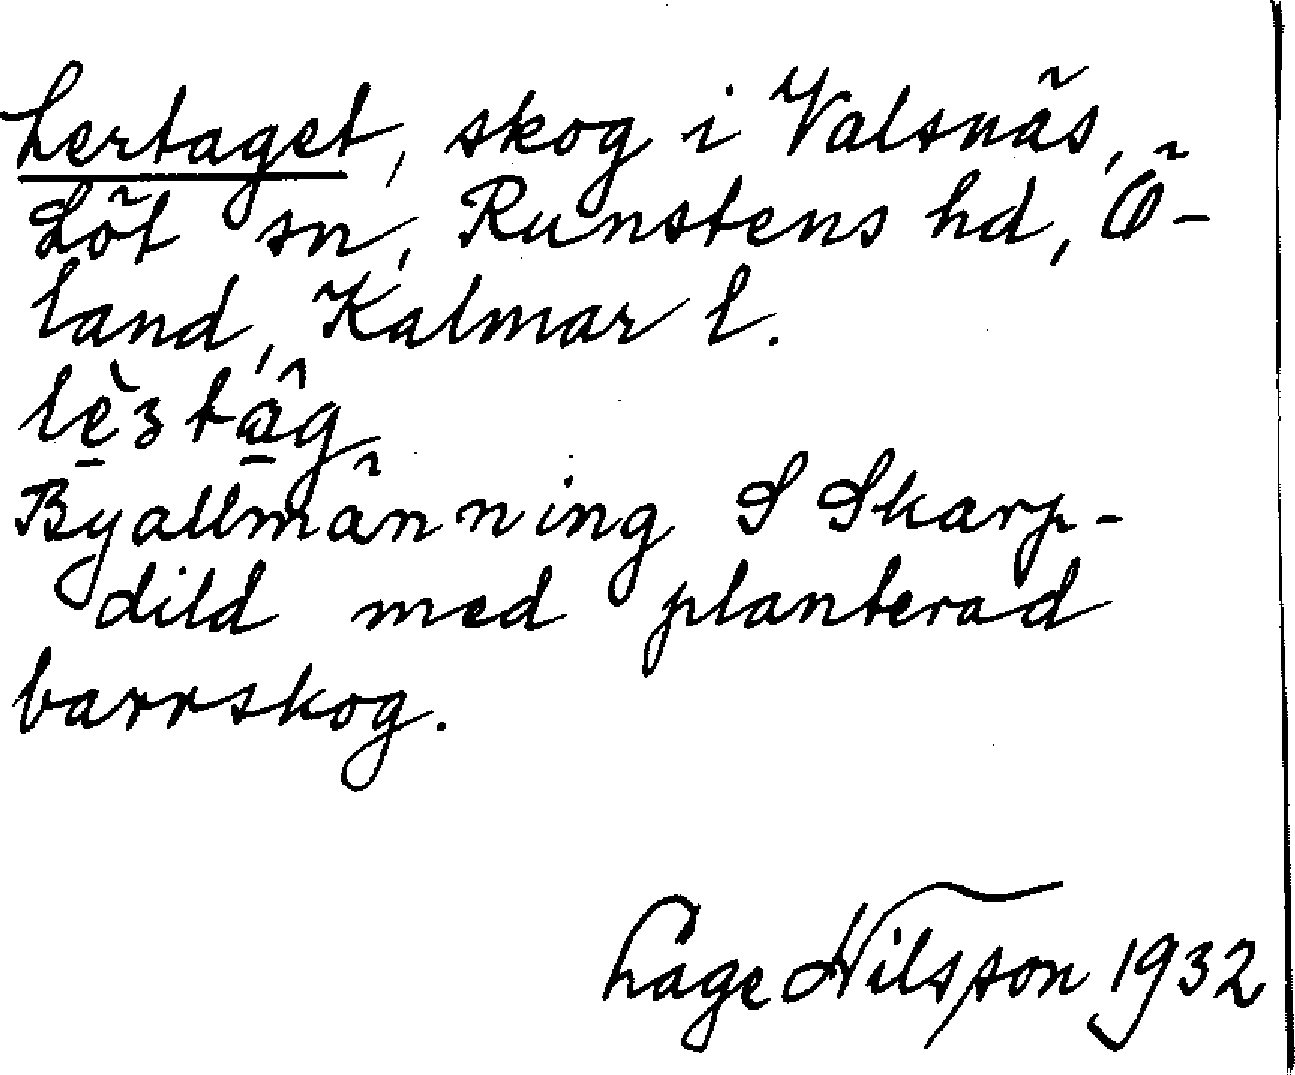 Lertaget, skog i Valsnäs,
Löt sn, Runstens hd, Ö-
land, Kalmar l.
Byallmänning S Skarp-
dild med planterad
barrskog.
Lage Nilsson 1932